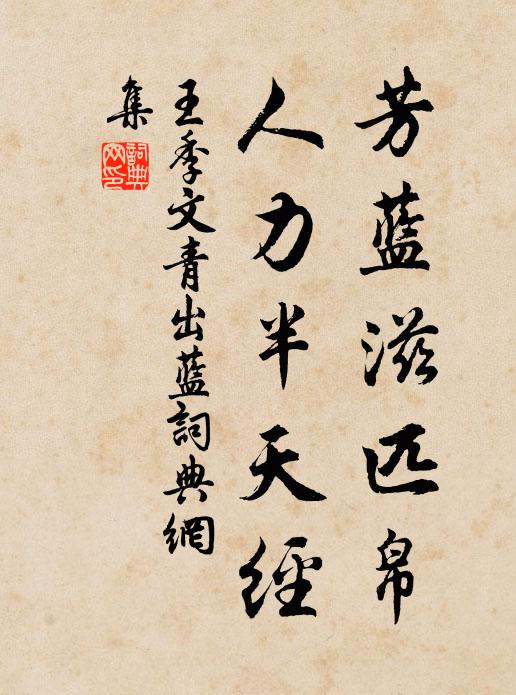 芳藍滋匹帛
人力半天經
王季文青出藍詞典網
集
詞典
网印